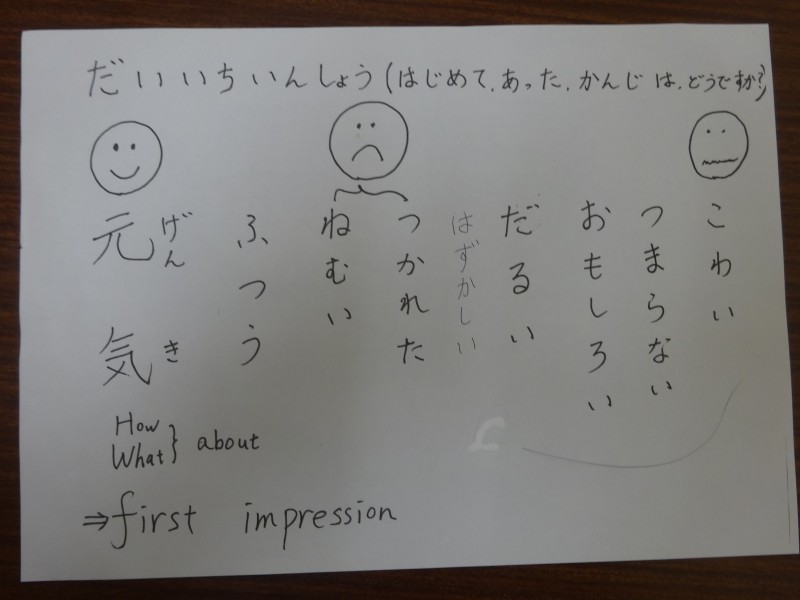 だいいちいんしょう(はじめて、あった、かんじは、どうですか?)
こわい
つまらない
おもしろい
だるい
はずかしい
つかれた
ねむい
ふつう
げんき
元気
How
What } about
⇒first impression